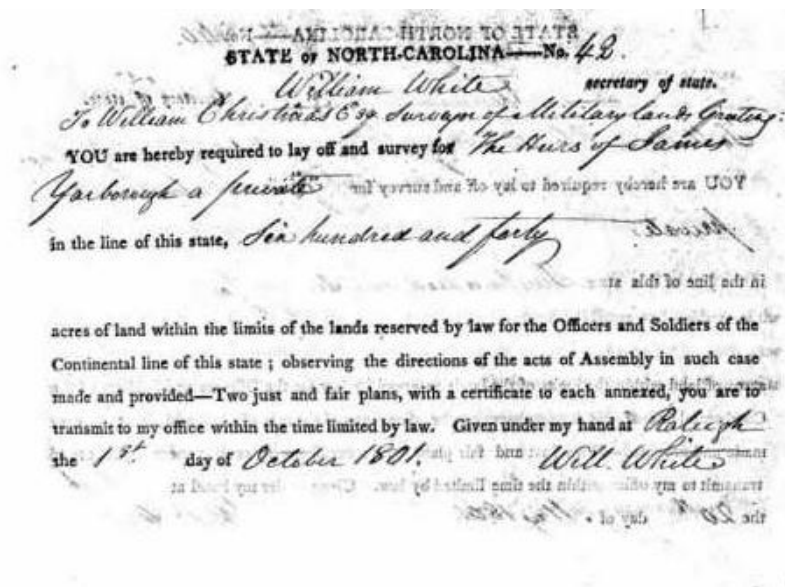 STATE OF NORTH-CAROLINA—No. 42.
William White secretary of state.
To William Christmas Esq. Surveyor of Military lands Greeting:
YOU are hereby required to lay off and survey for The Heirs of James
Yarborough a private
in the line of this state, Six hundred and forty
acres of land within the limits of the lands reserved by law for the Officers and Soldiers of the
Continental line of this state; observing the directions of the acts of Assembly in such case
made and provided—Two just and fair plans, with a certificate to each annexed, you are to
transmit to my office within the time limited by law. Given under my hand at Raleigh
the 1st. day of October 1801. Will. White